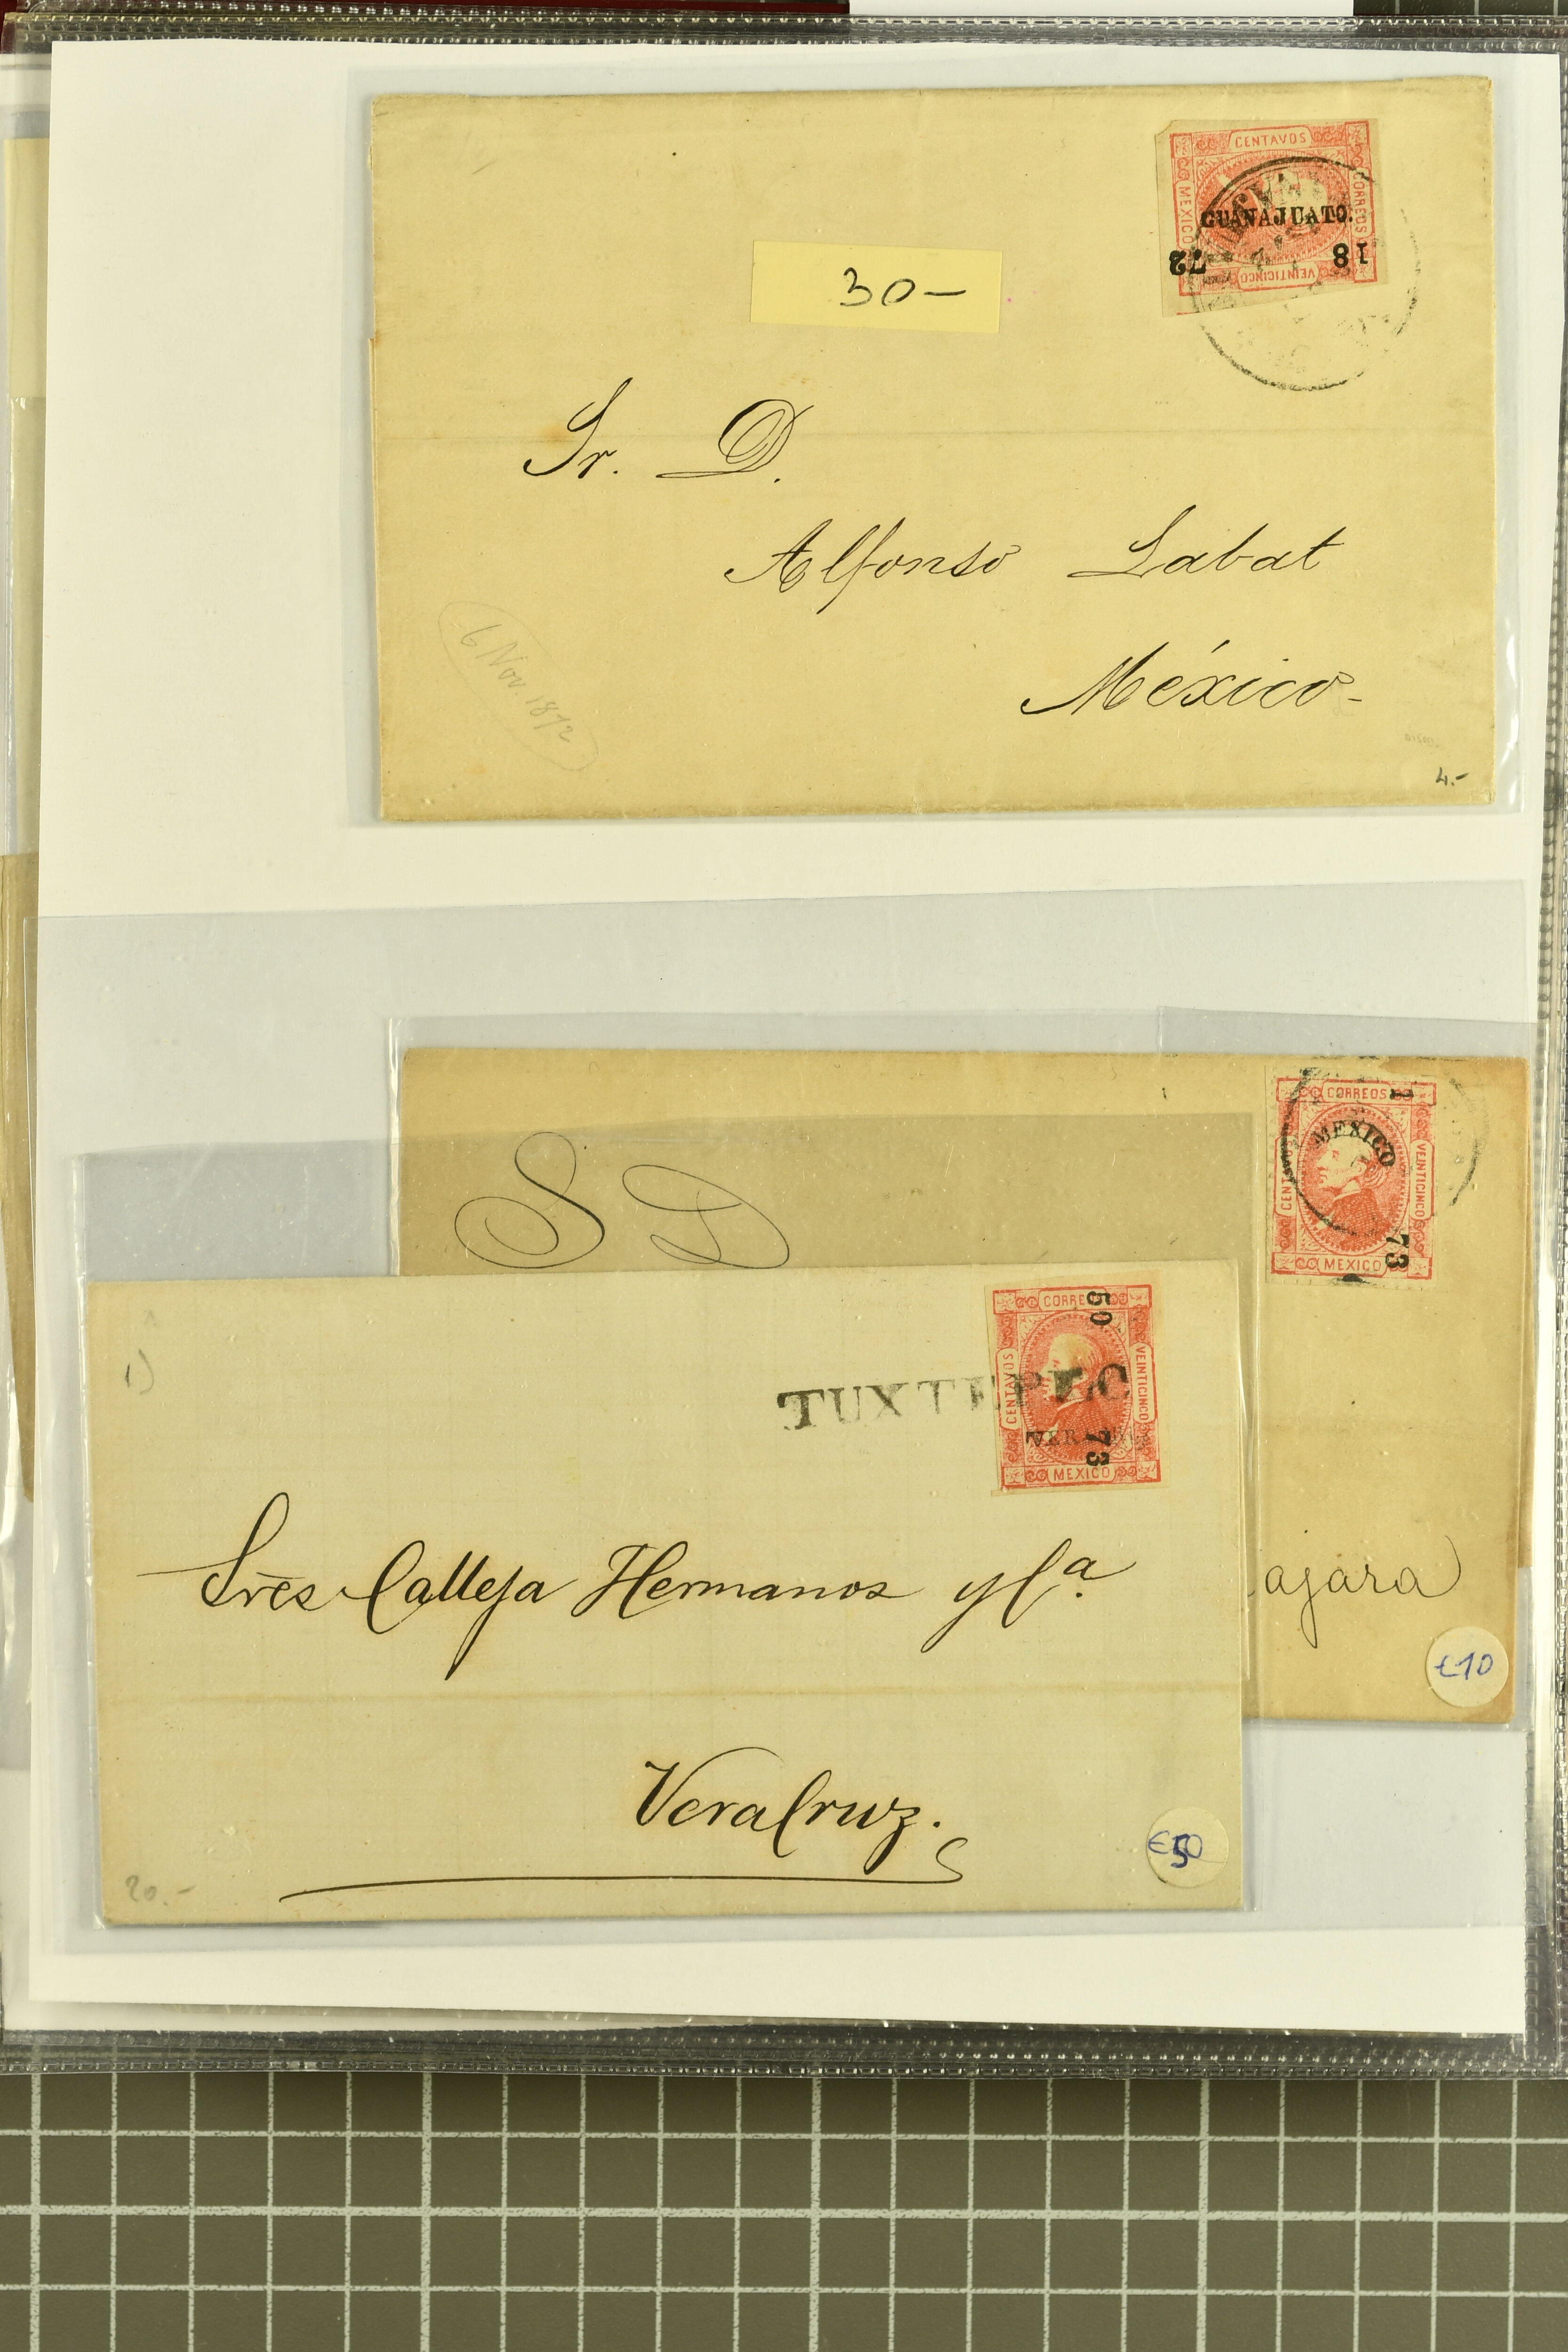 CENTAVOS
MEXICO
CORREOS
VEINTICINCO
GUANAJUATO.
18
72
30-
Sr. D.
Alfonso Labat
México-
6 Nov. 1872
4.-
CORREOS
VEINTICINCO
MEXICO
MEXICO
73
S D
ajara
€10
VEINTICINCO
CENTAVOS
MEXICO
50
73
TUXTEPEC
1)
Sres Calleja Hermanos y Ca.
VeraCruz.
20.-